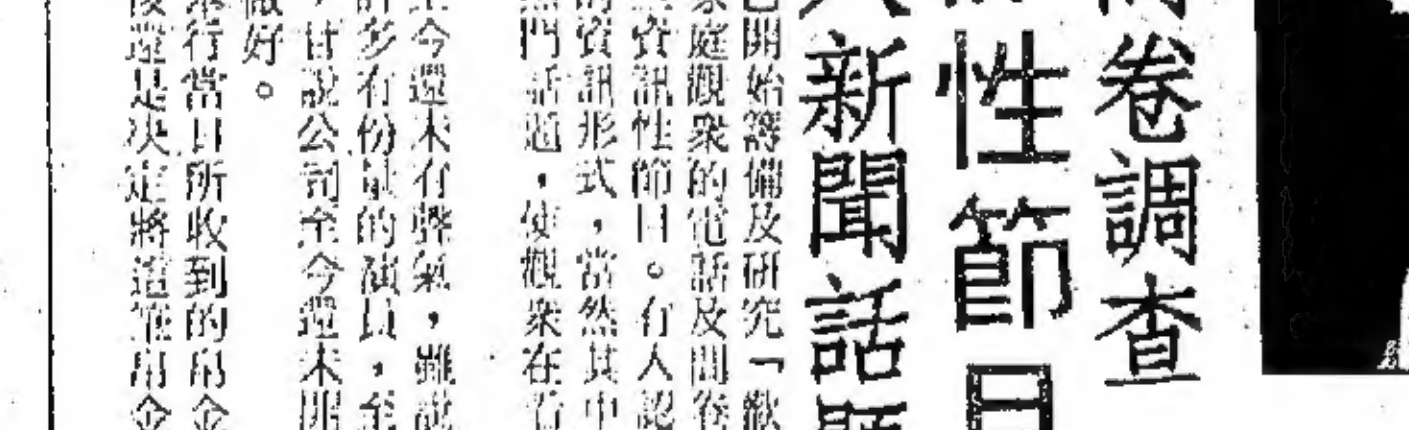 卷調查
性節目
新聞話題
開始籌備及研究「歡
家庭觀衆的電話及問卷
資訊性節目。有人認
的資訊形式，當然其中
熱門話題，使觀衆在看
至今還未有聲氣，雖說
許多有份量的演員，至
，甘說公司至今還未
做好。
舉行當日所收到的帛金
後還是决定將這筆帛金